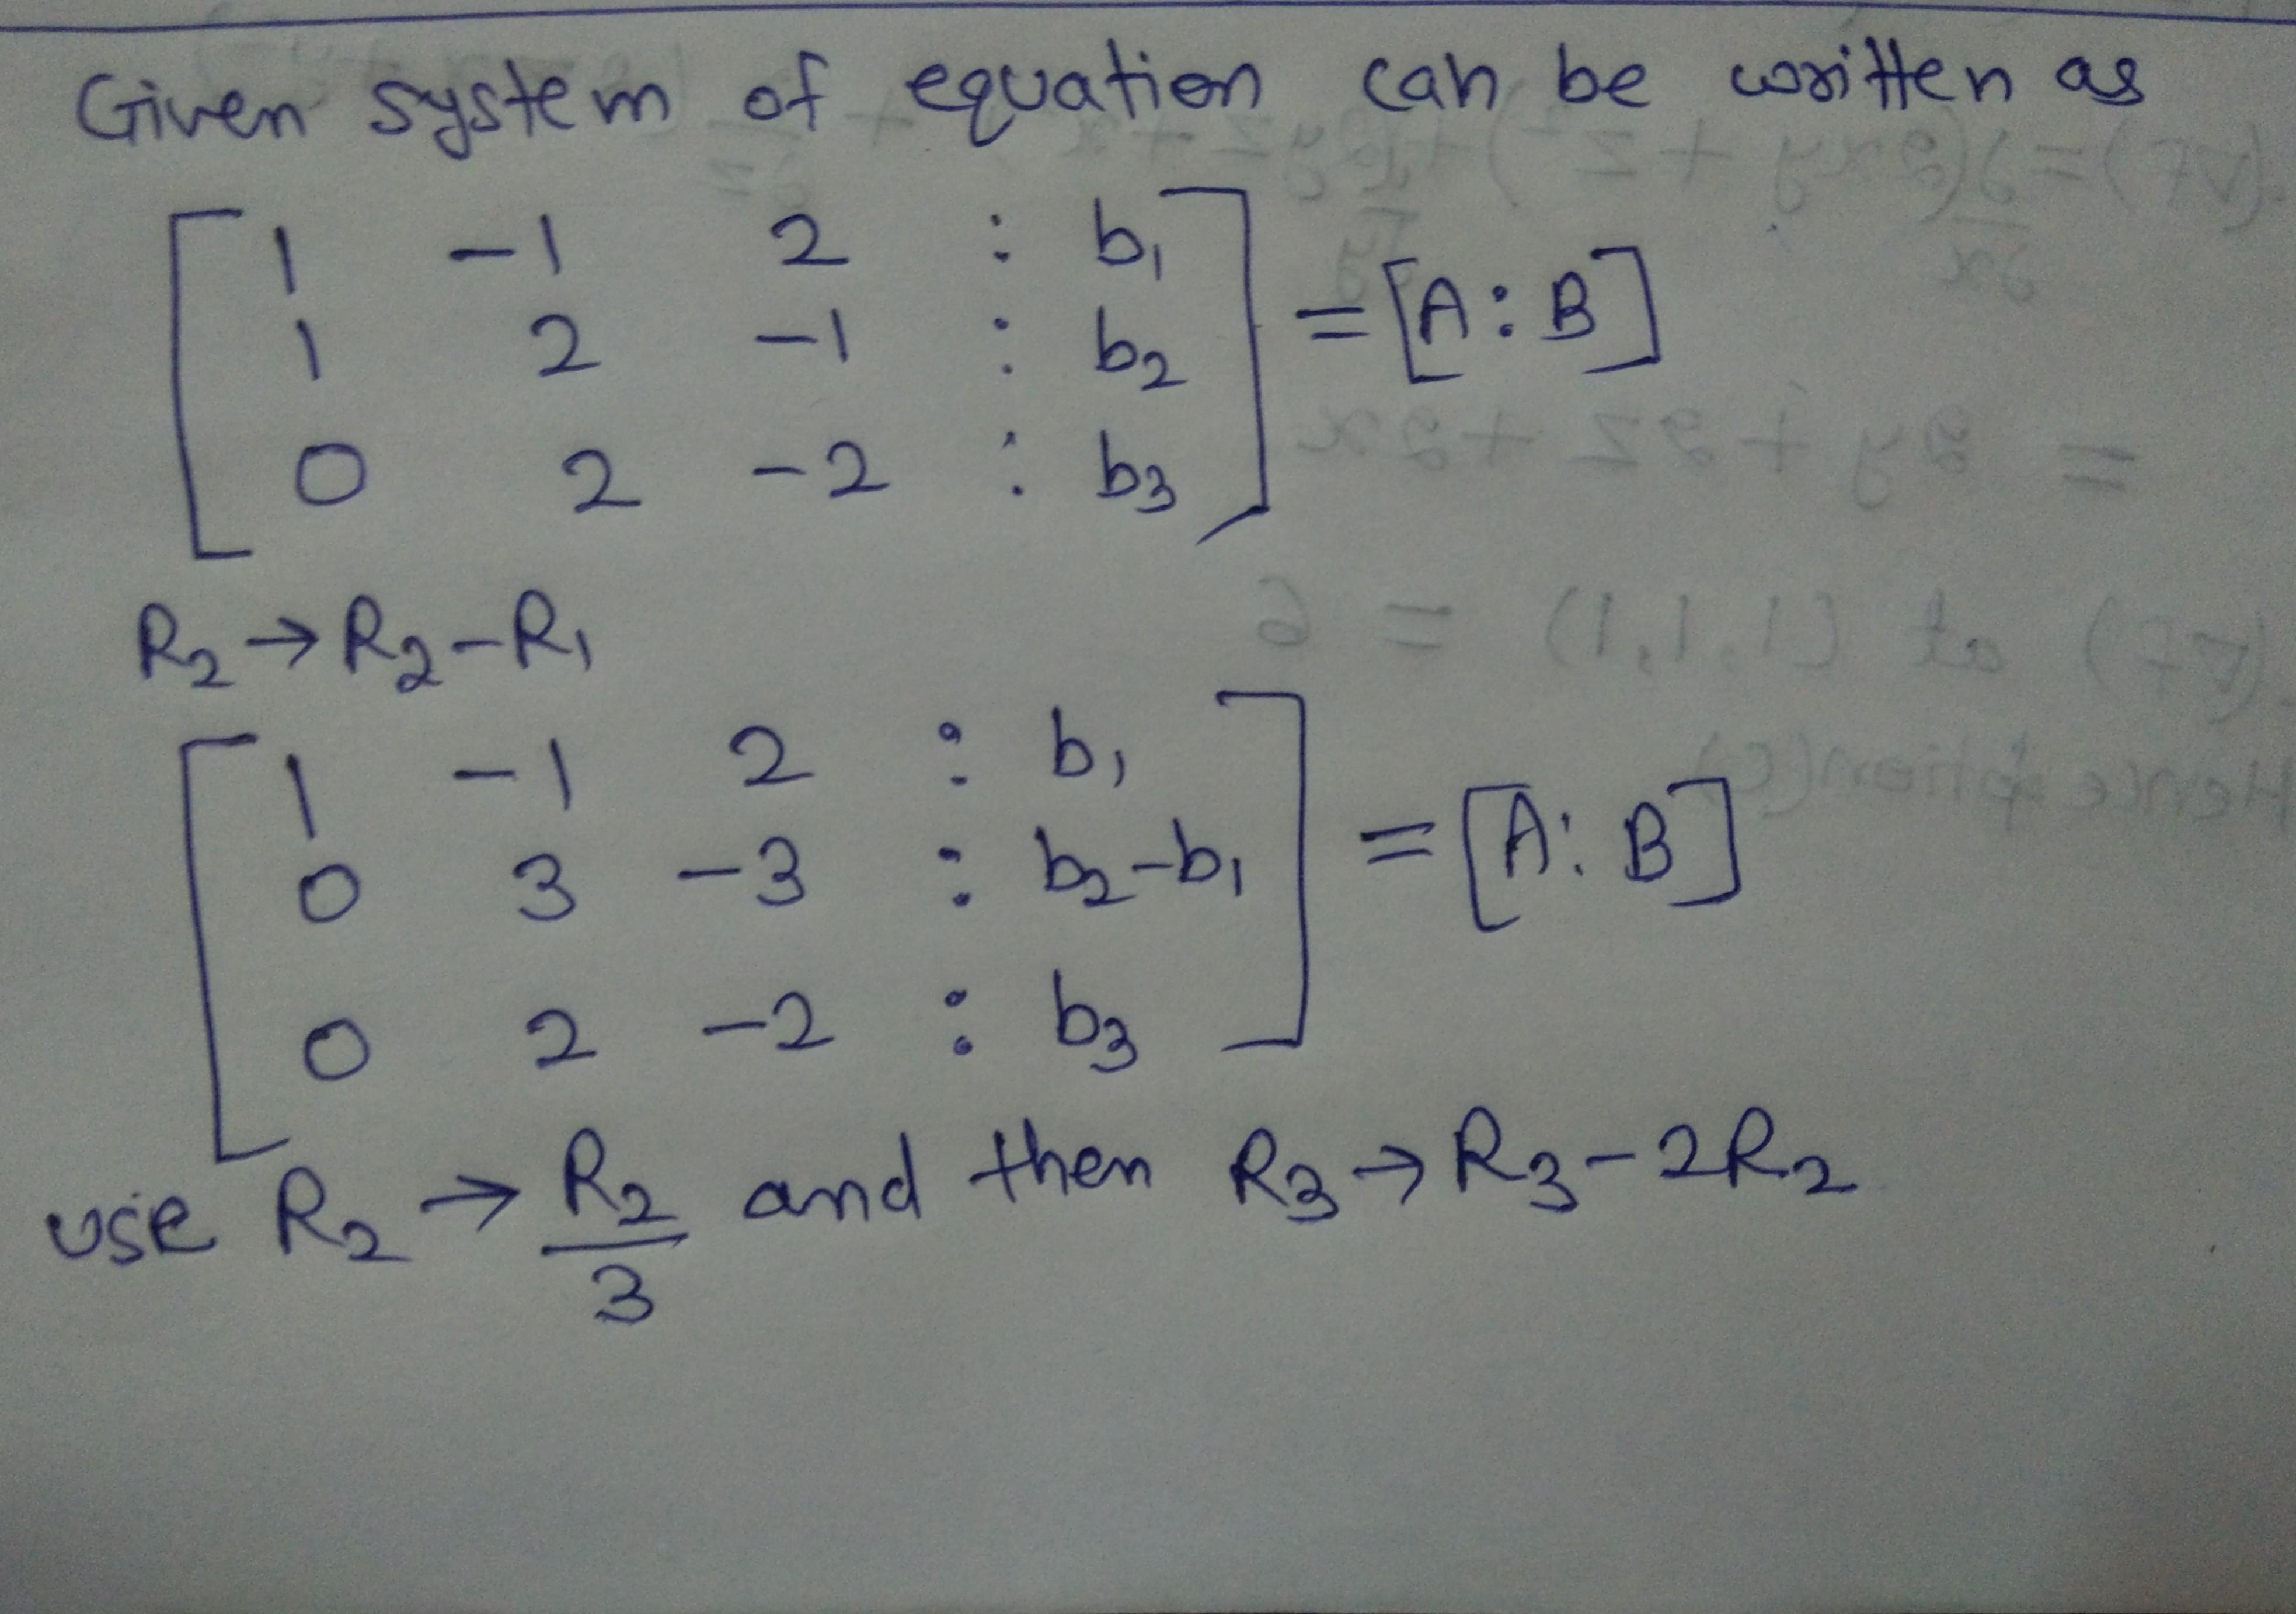 Given system of equation can be written as
[ 1 -1 2 : b₁
1 2 -1 : b₂
0 2 -2 : b₃ ] = [A : B]
R₂ → R₂ - R₁
[ 1 -1 2 : b₁
0 3 -3 : b₂-b₁
0 2 -2 : b₃ ] = [A : B]
use R₂ → R₂/3 and then R₃ → R₃ - 2R₂